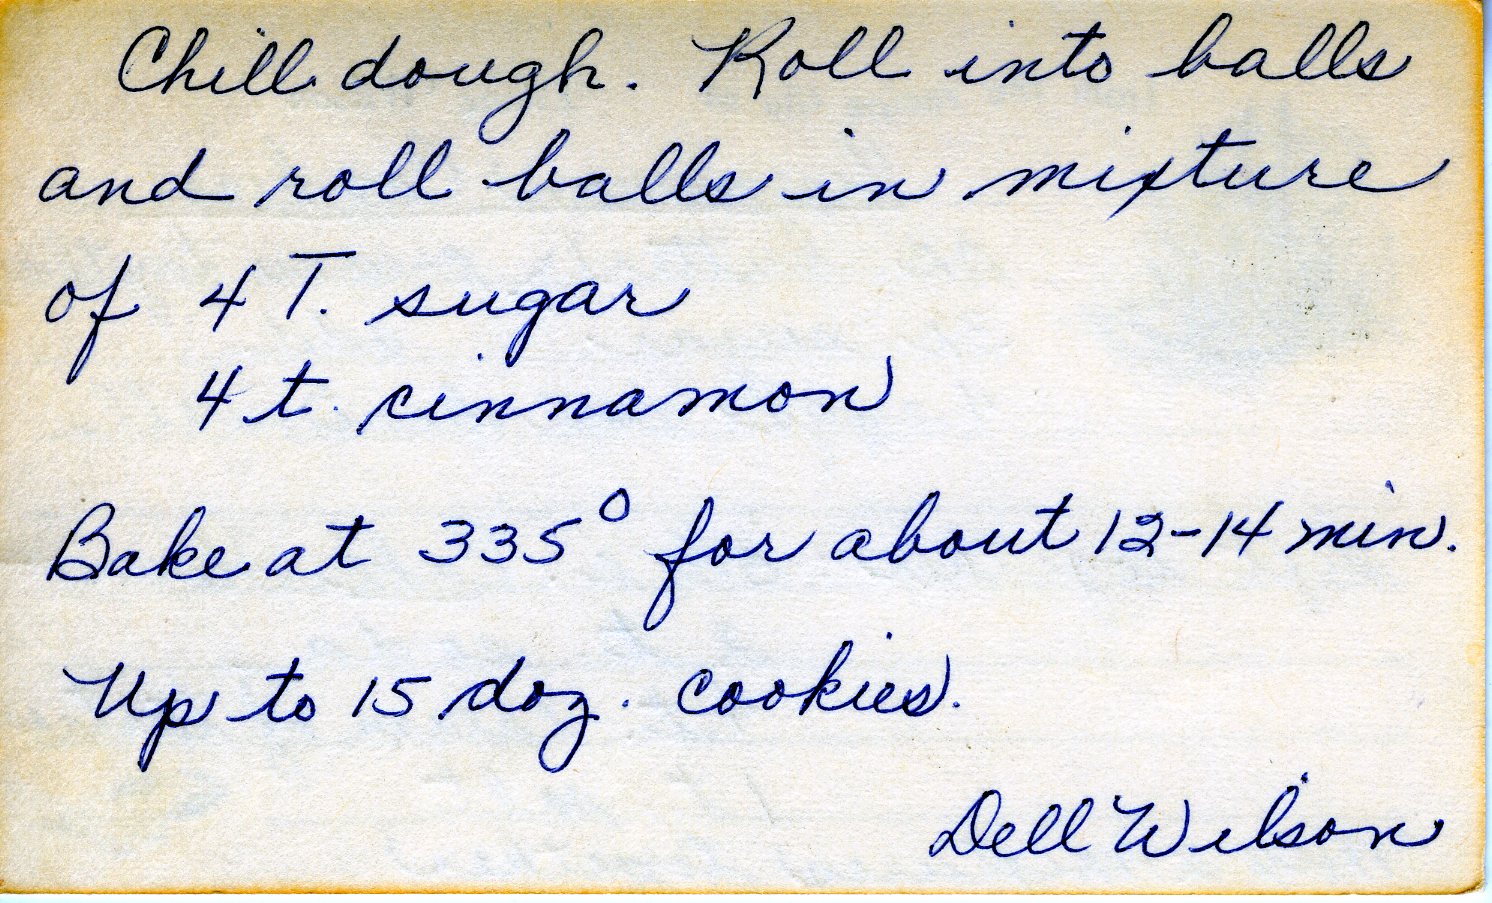 Chill dough. Roll into balls
and roll balls in mixture
of 4 T. sugar
4 t. cinnamon
Bake at 335° for about 12-14 min.
Up to 15 doz. cookies.
Dell Wilson